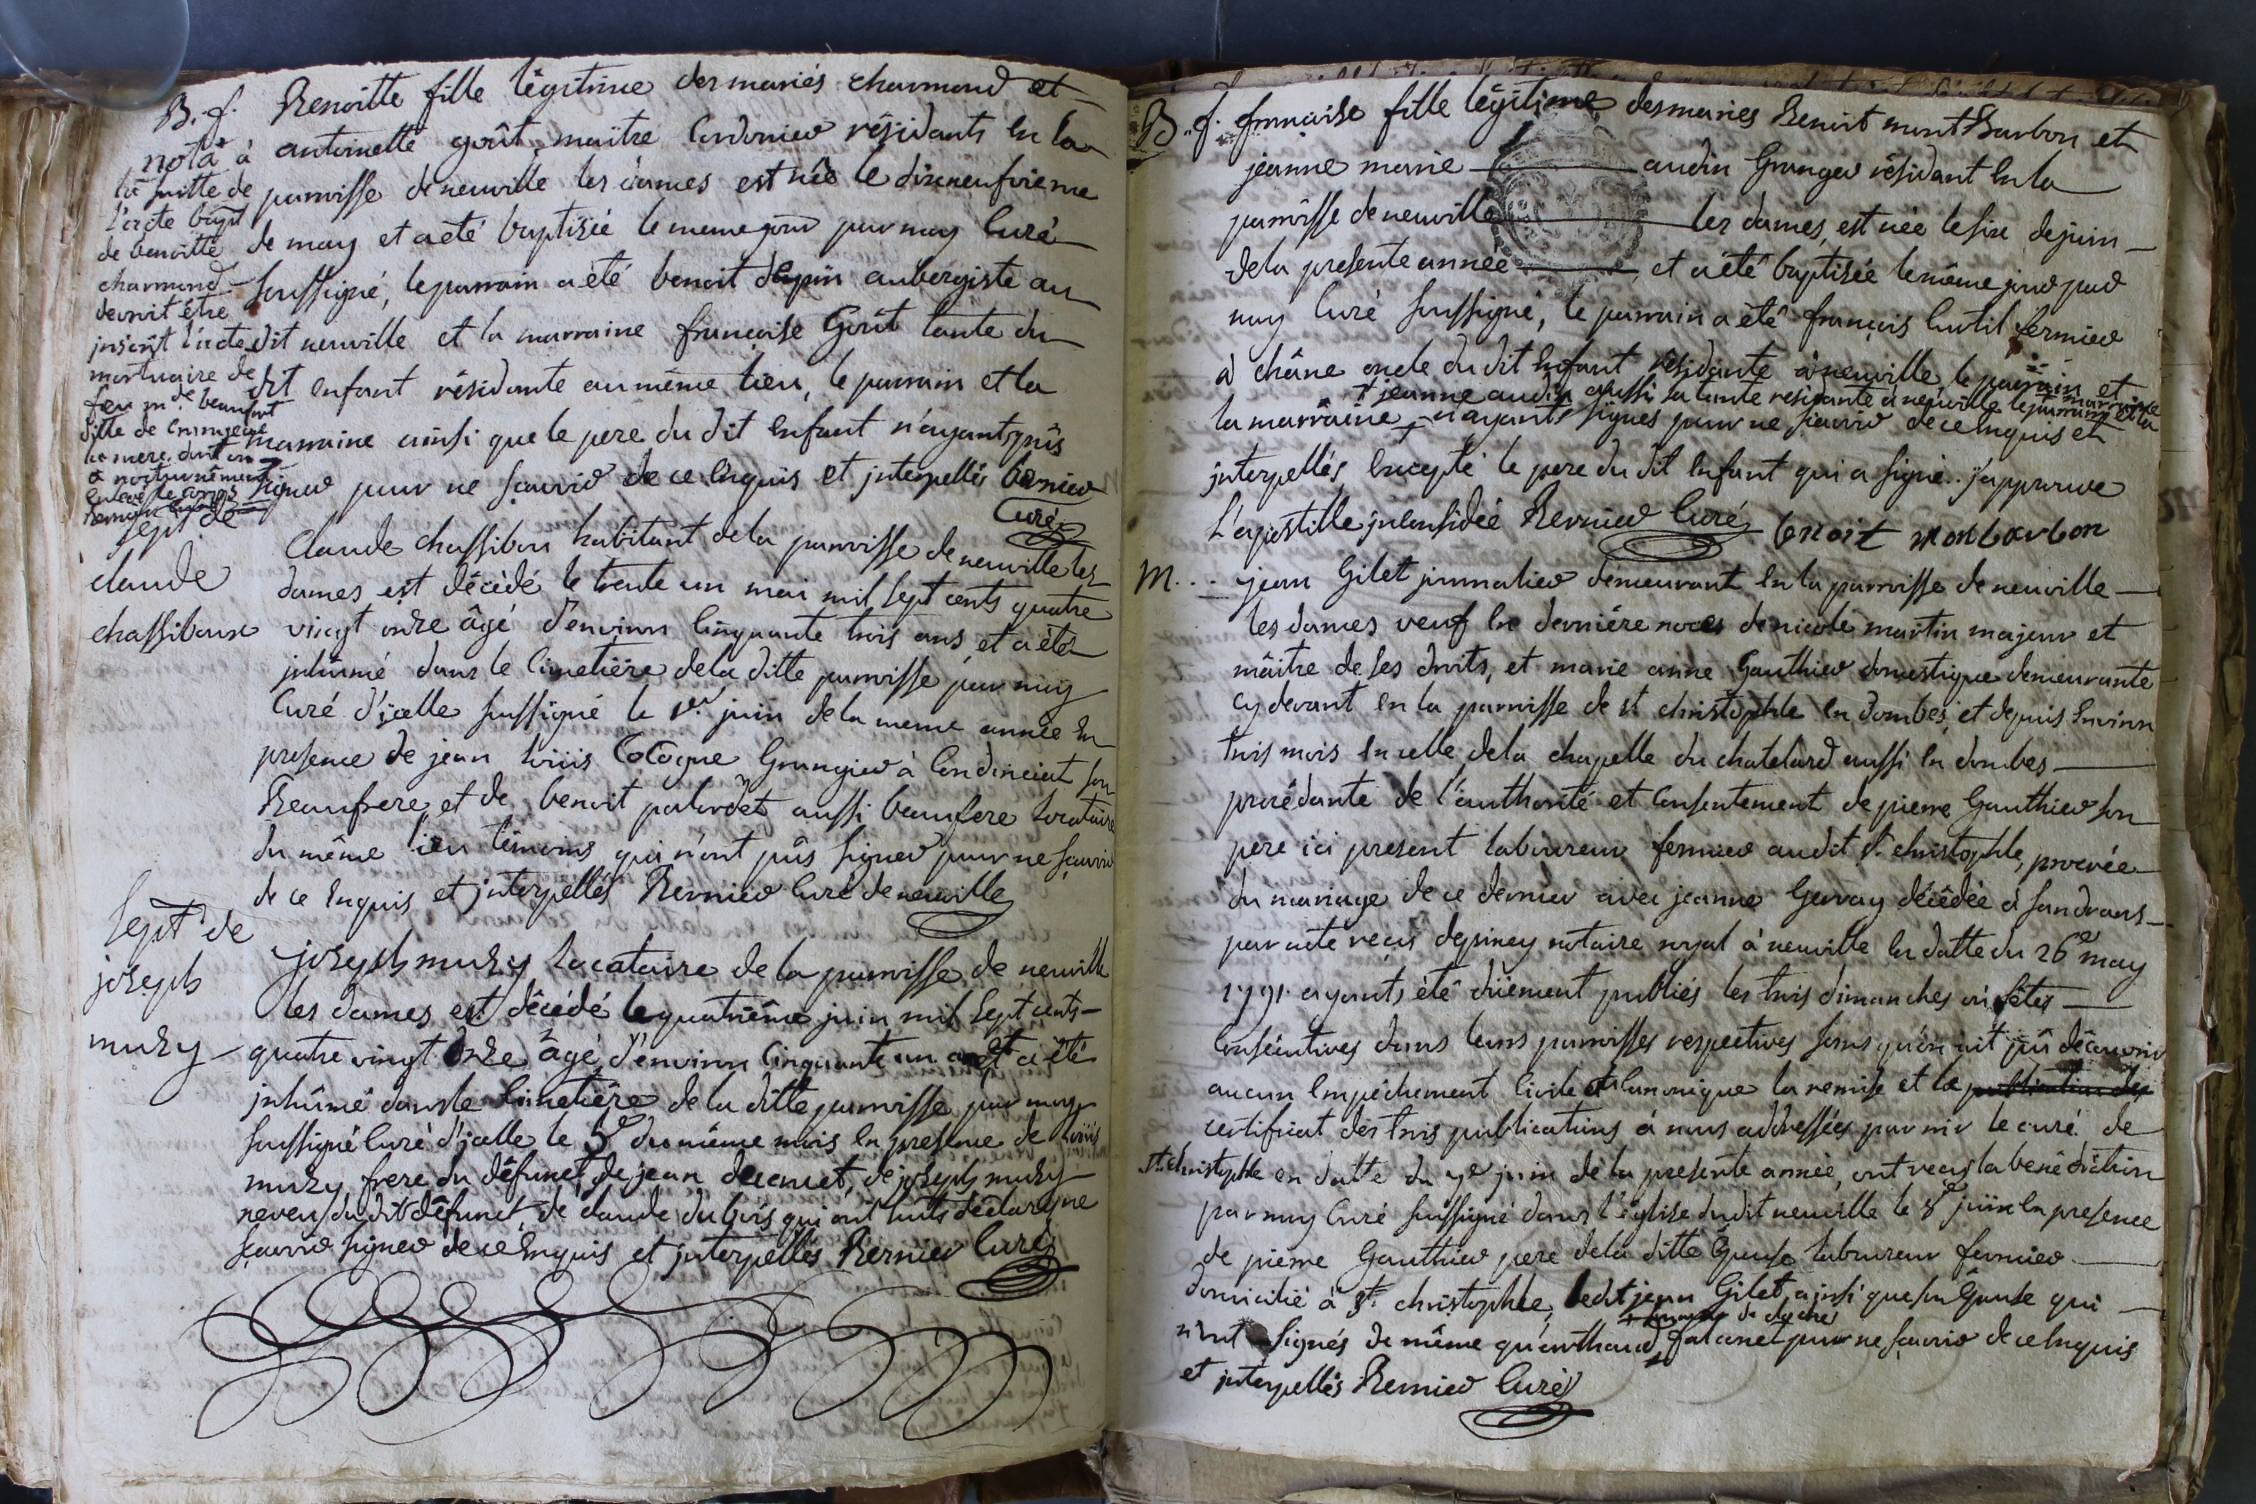 B. f. Benoitte fille légitime des mariés charmond et
antoinette goût, maitre Cordonier résidants en la
paroisse de neuville les dames est née le dixneufvieme
de may et a été baptisée le meme jour par moy Curé
soussigné, le parrain a été benoit dupin aubergiste au
dit neuville et la marraine françoise Goût tante du
dit enfant résidante au même lieu, le parrain et la
marraine ainsi que le pere du dit enfant n'ayant pûs
signer pour ne sçavoir de ce Enquis et interpellés Bernier
Curé
nota à
la suitte de
l'acte bapt
de benoitte
charmond
devoit être
inscrit l'acte
mortuaire de
feu m. de beaufort
fille de
la mere dont on
a nocturnément
Enlevé le corps
Bernier Curé
sept. de
claude
chassiboux
Claude chassiboux habitant de la paroisse de neuville les
dames est décédé le trente un mai mil sept cents quatre
vingt onze âgé d'environ Cinquante trois ans, et a été
inhumé dans le Cimetière de la ditte paroisse par moy
Curé d'icelle soussigné le 1er juin de la meme année en
presence de jean loüis Cocogne Grangier à Condineiat son
Beaufrere, et de benoit patardet aussi beaufrere locataire
du même lieu témoins qui n'ont pûs signer pour ne sçavoir
de ce Enquis et interpellés Bernier Curé de neuville
sept de
joseph
muzy
joseph muzy Locataire de la paroisse de neuville
les dames est décédé le quatrième juin mil sept cents
quatre vingt onze âgé d'environ Cinquante un an et a été
inhûmé dans le Cimetière de la ditte paroisse par moy
soussigné Curé d'icelle le 5e du même mois en presence de loüis
muzy frere du défunct, de jean decruet, de joseph muzy
neveu du dit défunct, de claude dubois qui ont touts déclaré ne
sçavoir signer de ce Enquis et interpellés Bernier Curé
B. f. françoise fille légitime des mariés Benoit montBarbon et
jeanne marie audin Granger résidant en la
paroisse de neuville les dames, est née le six de juin
de la presente année et a été baptisée le même jour par
moy Curé soussigné, le parrain a été françois fermier
à châne oncle du dit enfant résidante à neuville, le parrain et
+ jeanne audin aussi sa tante residante a neuville le parrain et la marraine
la marraine + n'ayants signés pour ne sçavoir de ce Enquis et
interpellés, Excepté le pere du dit enfant qui a signé. j'approuve
L'apostille Bernier Curé benoit monbarbon
M. jean Gilet jornalier demeurant en la paroisse de neuville
les dames veuf En derniére noces de nicole martin majeur et
maître de ses droits, et marie anne Gauthier domestique demeurante
cy devant en la paroisse de st christophle en dombes, et depuis Environ
trois mois en celle de la chapelle du chatelard aussi en dombes
procédante de l'authorité et Consentement de pierre Gauthier son
pere ici present laboureur fermier audit st christophle, procréée
du mariage de ce dernier avec jeanne Gervay décédée à sandrans
par acte reçu depiney notaire royal à neuville en datte du 26e may
1791 ayants été düement publiés les trois dimanches où fêtes
Consécutives dans leurs paroisses respectives sans qu'on ait pû découvrir
aucun Empêchement Civile et Canonique la remise et le publication des
certificat des trois publications à nous addressées par mr le curé de
st. christophle en datte du 7e juin de la presente année, ont reçu la bénédiction
par moy Curé soussigné dans l'église dudit neuville le 8e juin en presence
de pierre Gauthier pere de la ditte Epouse laboureur fermier
domicilié à st. christophle, ledit jean Gilet, ainsi que son Epouse qui
n'ont signés de même qu'anthoine falconet pour ne sçavoir de ce Enquis
et interpellés Bernier Curé